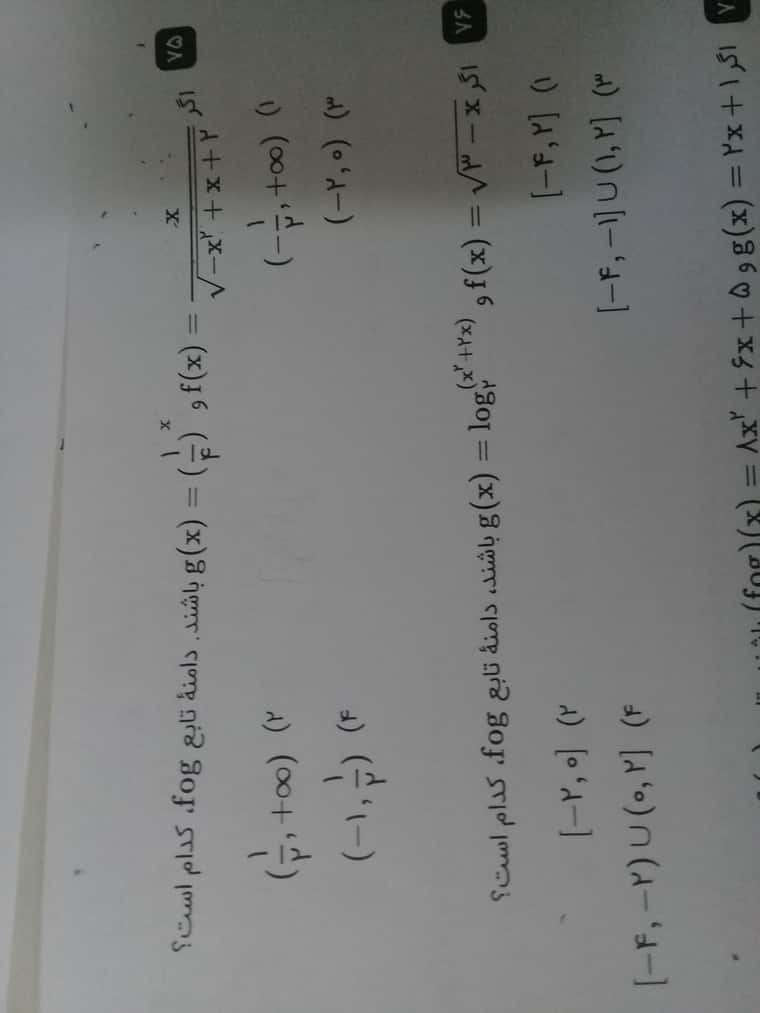 ۷۵ اگر f(x) = x / √(−x² + x + ۲) و g(x) = (۱/۴)^x باشند. دامنهٔ تابع fog، کدام است؟
۱) (−۱/۲, +∞) ۲) (۱/۲, +∞)
۳) (−۲, ۰) ۴) (−۱, ۱/۲)
۷۶ اگر f(x) = √(۳ − x) و g(x) = log₂^(x²+۲x) باشند، دامنهٔ تابع fog، کدام است؟
۱) [−۴, ۲] ۲) [−۲, ۰]
۳) [−۴, −۱] ∪ (۱, ۲] ۴) [−۴, −۲) ∪ (۰, ۲]
اگر g(x) = ۲x + ۱ و (fog)(x) = ۸x² + ۶x + ۵